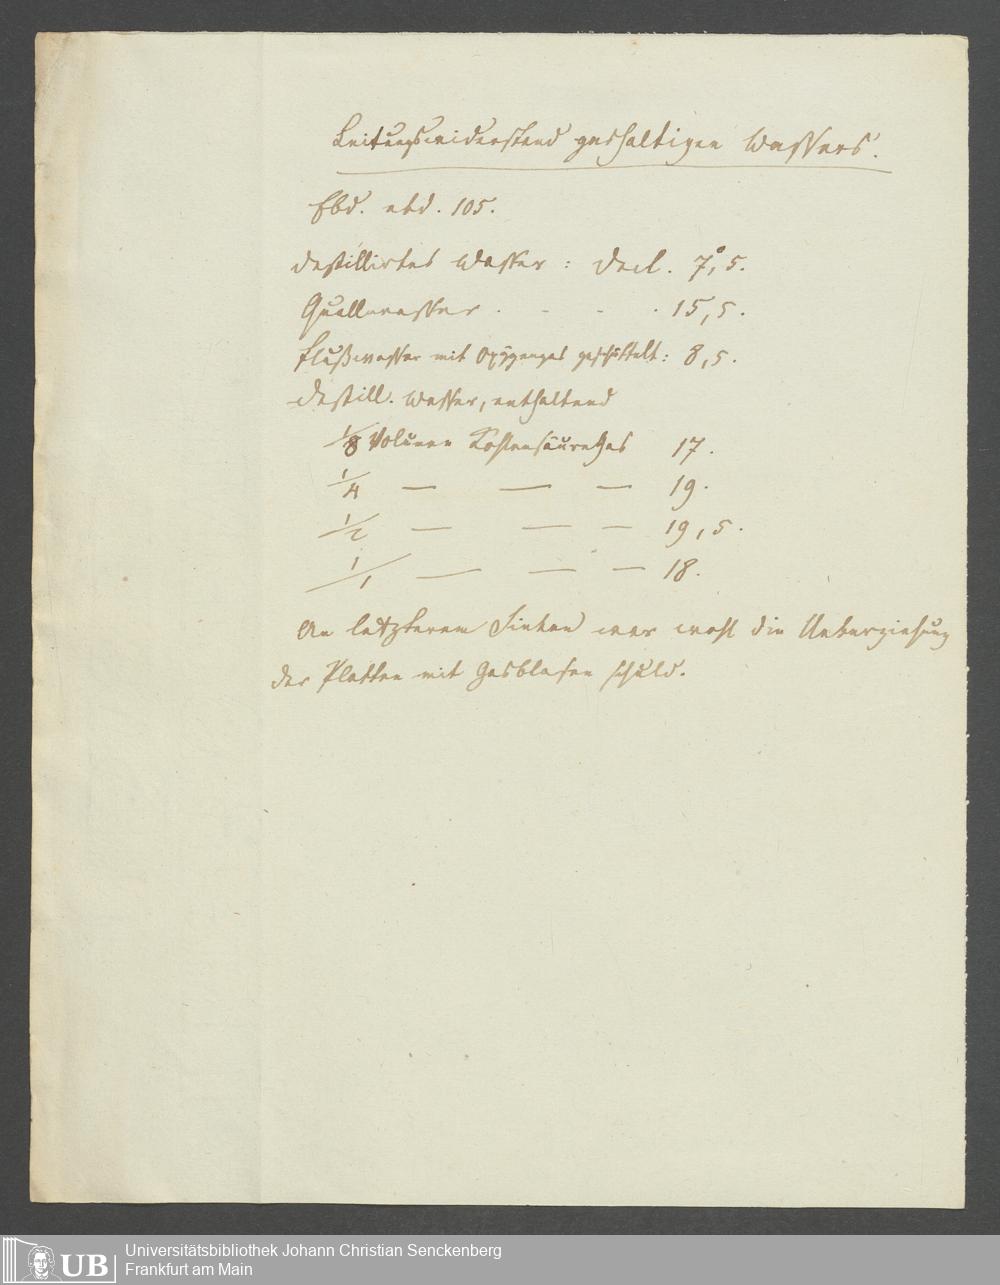 Leitungswiderstand gashaltigen Wassers.
Ebd. ebd. 105.
destillirtes Wasser : Decl. 7°,5.
Quellwasser . - - . 15,5.
Flußwasser mit Oxÿgengas geschüttelt: 8,5.
Destill. Wasser, enthaltend
1/8 Volumen KohlensäureGas 17.
1/4 — — — 19.
1/2 — — — 19,5.
1/1 — — — 18.
An letzterem Sinken war wohl die Ueberziehung
der Platten mit Gasblasen schuld.
UB Universitätsbibliothek Johann Christian Senckenberg
Frankfurt am Main